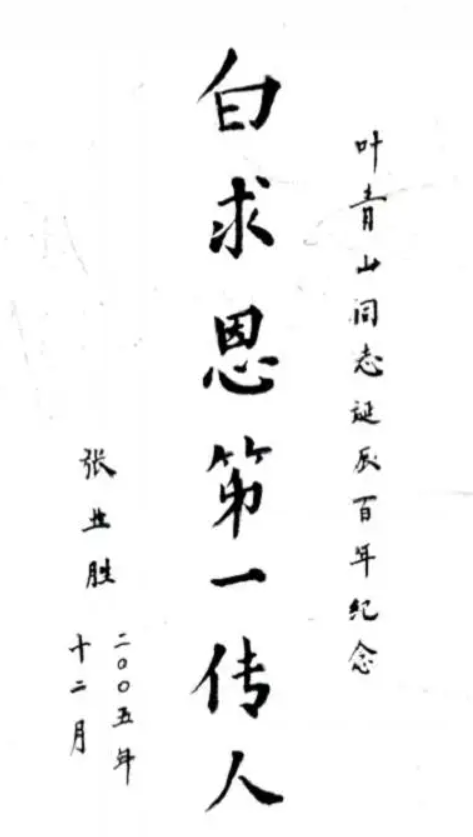 叶青山同志誕辰百年纪念
白求恩第一传人
张业胜
二〇〇五年
十二月